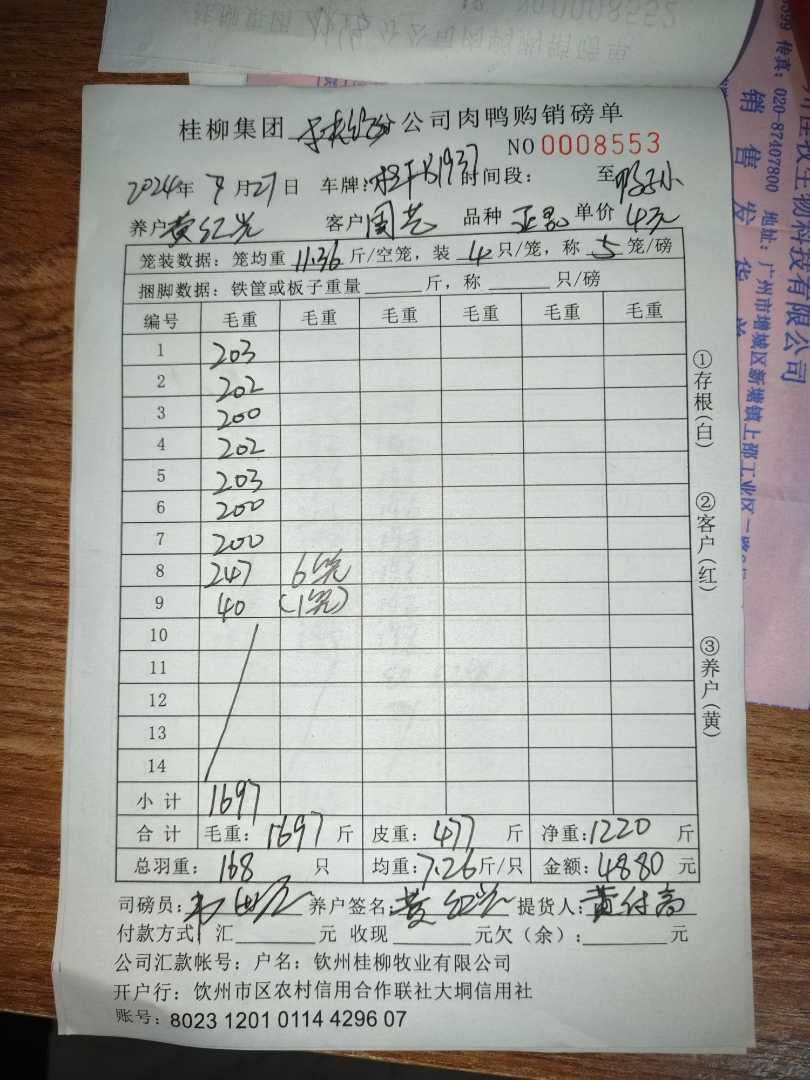 桂柳集团 公司肉鸭购销磅单
NO 0008553
2024年 9月27日 车牌:桂 1937 时间段: 至
养户 黄红兴 客户 周芑 品种 单价 4元
笼装数据:笼均重 11.36 斤/空笼,装 4 只/笼,称 5 笼/磅
捆脚数据:铁筐或板子重量 斤,称 只/磅
编号 毛重 毛重 毛重 毛重 毛重 毛重
1 203
2 202
3 200
4 202
5 203
6 200
7 200
8 247 6笼
9 40 (1笼)
10
11
12
13
14
小计 1697
合计 毛重:1697 斤 皮重:477 斤 净重:1220 斤
总羽重:168 只 均重:7.26斤/只 金额:4880 元
司磅员: 养户签名:黄红兴 提货人:黄付高
付款方式 汇 元 收现 元欠(余): 元
公司汇款帐号:户名:钦州桂柳牧业有限公司
开户行:饮州市区农村信用合作联社大垌信用社
账号:8023 1201 0114 4296 07
①存根(白)
②客户(红)
③养户(黄)
牧生物科技有限公司
地址:广州市增城区新塘镇上邵工业区一路
传真:020-87407800
销售发货单